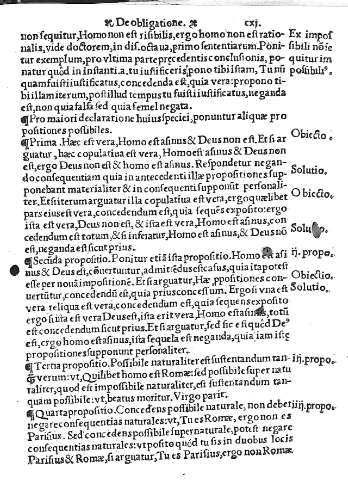 De obligatione. cxj.
non sequitur, Homo non est risibilis, ergo homo non est ratio- Ex impos
nalis, vide doctorem, in dis. octaua, primo sententiarum. Poni- sibili nõ se
tur exemplum, pro vltima parte præcedentis conclusionis, po- quitur im
natur quòd in instanti .a. tu iustificeris, pono tibi istam, Tu nũ possibile.
quam fuisti iustificatus, concedenda est, quia vera: propono ti-
bi illam iterum, post illud tempus tu fuisti iustificatus, neganda
est, non quia falsa sed quia semel negata.
¶ Pro maiori declaratione huius speciei, ponuntur aliquæ pro
positiones possibiles.
¶ Prima. Hæc est vera, Homo est asinus & Deus non est. Et si ar Obiectio.
guatur, hæc copulatiua est vera, Homo est asinus & Deus non
est, ergo Deus non est & homo est asinus. Respondetur negan-
do consequentiam quia in antecedenti illæ propositiones sup- Solutio.
ponebant materialiter & in consequenti supponũt personali-
ter. Et si iterum arguatur illa copulatiua est vera, ergo quælibet Obiectio.
pars eius est vera, concedendum est, quia sequẽs exposito: ergo
ista est vera, Deus non est, & ista est vera, Homo est asinus, con
cedendum est totum, & si inferatur, Homo est asinus, & Deus nõ
est, neganda est sicut prius.
¶ Secũda propositio. Ponitur etiã ista propositio. Homo est asi ij. propo.
nus & Deus est, cõuertuntur, admittẽdus est casus, quia ita potest
esse per nouã impositionẽ. Et si arguatur, Hæ ꝓpositiones con- Obiectio
uertũtur, concedẽdũ est, quia prius concessum. Ergo si vna est Solutio.
vera reliqua est vera, concedendum est, quia sequens exposito
ergo si ista est vera Deus est, ista erit vera, Homo est asinus, totũ
est concedendum sicut prius. Et si arguatur, sed sic est quòd De⁹
est, ergo homo est asinus, ista sequela est neganda, quia iam istæ
propositiones supponunt personaliter.
¶ Tertia propositio. Possibile naturaliter est sustentandum tan- iij. propo.
quam verum: vt, Quilibet homo est Romæ: sed possibile super natu
raliter, quod est impossibile naturaliter, est sustentandum tan-
quam possibile: vt, beatus moritur. Virgo parit.
¶ Quarta propositio. Concedens possibile naturale, non debet iiij. propo.
negare consequentias naturales: vt, Tu es Romæ, ergo non es
Parisius. Sed concedens possibile supernaturale, potest negare
consequentias naturales: vt posito quòd tu sis in duobus locis
Parisius & Romæ, si arguatur, Tu es Parisius, ergo non Romæ